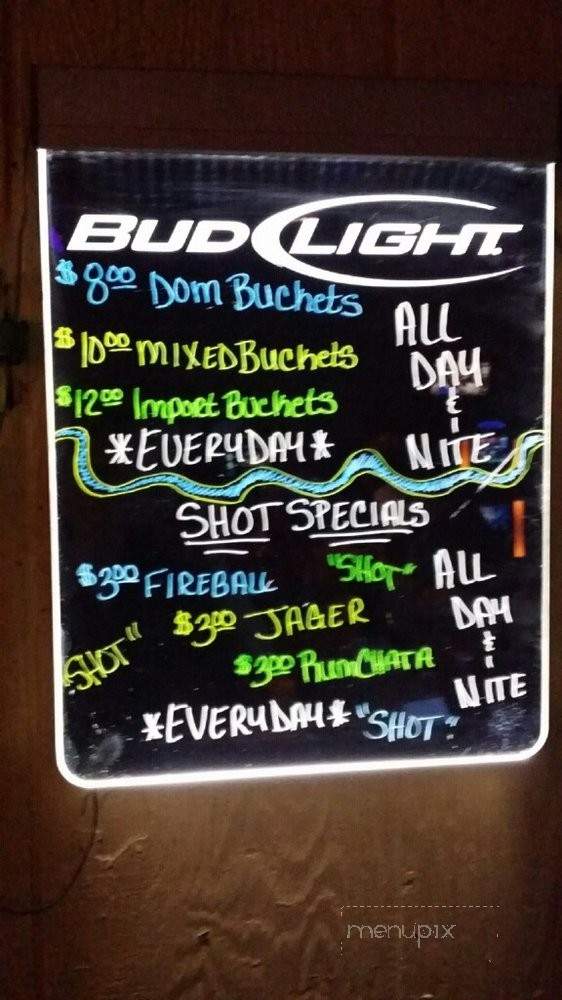 BUD LIGHT
$8.00 Dom Buckets
$10.00 MIXED Buckets
$12.00 Import Buckets
*EVERYDAY*
ALL
DAY
&
NITE
SHOT SPECIALS
$3.00 FIREBALL "SHOT"
$3.00 JAGER
"SHOT"
$3.00 RumCHATA
*EVERYDAY* "SHOT"
ALL
DAY
&
NITE
menupix